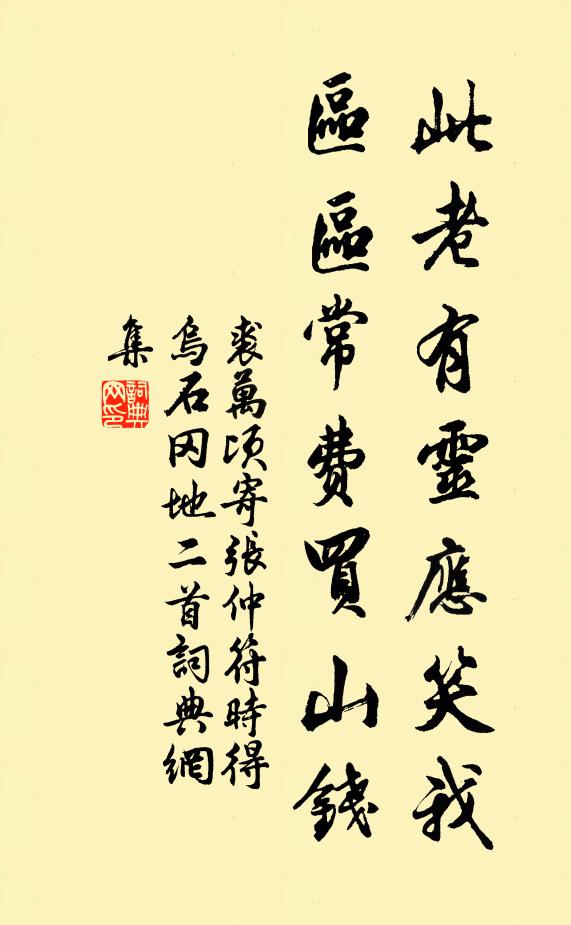 此老有靈應笑我
區區常費買山錢
裘萬頃寄張仲符時得
烏石冈地二首詞典網
集
詞典网印